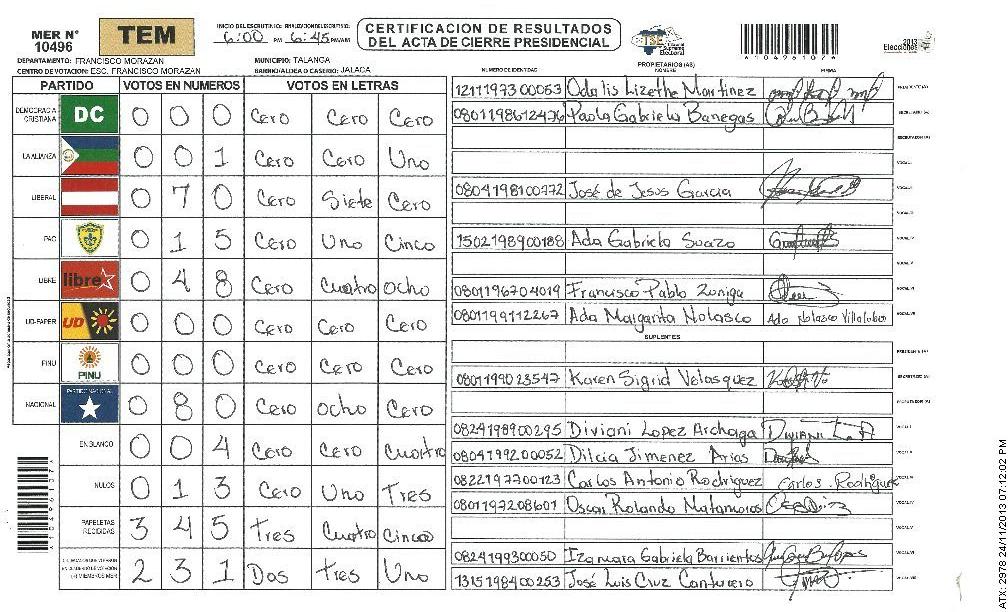 MER N° 10496
TEM
INICIO DEL ESCRUTINIO: 6:00 PM FINALIZACION DEL ESCRUTINIO: 6:45 PM/AM
CERTIFICACION DE RESULTADOS
DEL ACTA DE CIERRE PRESIDENCIAL
TSE Tribunal Supremo Electoral
2013
Elecciones
DEPARTAMENTO: FRANCISCO MORAZAN MUNICIPIO: TALANGA
CENTRO DE VOTACION: ESC. FRANCISCO MORAZAN BARRIO/ALDEA O CASERIO: JALACA
PARTIDO VOTOS EN NUMEROS VOTOS EN LETRAS
DEMOCRACIA CRISTIANA DC 0 0 0 Cero Cero Cero
LA ALIANZA 0 0 1 Cero Cero Uno
LIBERAL 0 7 0 Cero Siete Cero
PAC 0 1 5 Cero Uno Cinco
LIBRE libre 0 4 8 Cero Cuatro ocho
UD-FAPER UD 0 0 0 Cero Cero Cero
PINU PINU 0 0 0 Cero Cero Cero
NACIONAL PARTIDO NACIONAL 0 8 0 Cero ocho Cero
EN BLANCO 0 0 4 Cero Cero Cuatro
NULOS 0 1 3 Cero Uno Tres
PAPELETAS RECIBIDAS 3 4 5 Tres Cuatro Cinco
2 3 1 Dos Tres Uno
NUMERO DE IDENTIDAD PROPIETARIOS (AS) NOMBRE FIRMA
1211197300053 Odalis Lizethe Martinez PRESIDENTE (A)
0801198612476 Paola Gabriela Banegas SECRETARIO (A)
ESCRUTADOR (A)
VOCAL I
0804198100772 José de Jesus Garcia VOCAL II
VOCAL III
1502198900188 Ada Gabriela Suazo VOCAL IV
VOCAL V
0801196704019 Francisco Pablo Zuniga VOCAL VI
0801199112267 Ada Margarita Nolasco Ada Nolasco Villalobo VOCAL VII
SUPLENTES
PRESIDENTE (A)
0801199023547 Karen Sigrid Velasquez SECRETARIO (A)
ESCRUTADOR (A)
0824198900295 Diviani Lopez Archaga DIVIANI L.A VOCAL I
0804199200052 Dilcia Jimenez Arias VOCAL II
0822197700123 Carlos Antonio Rodriguez Carlos. Rodriguez
0801197208601 Oscar Rolando Matamoros VOCAL IV
VOCAL V
0824199300050 Izamara Gabriela Barrientos VOCAL VI
1315198400253 José Luis Cruz Canturero VOCAL VII
ATX: 2978 24/11/2013 07:12:02 PM